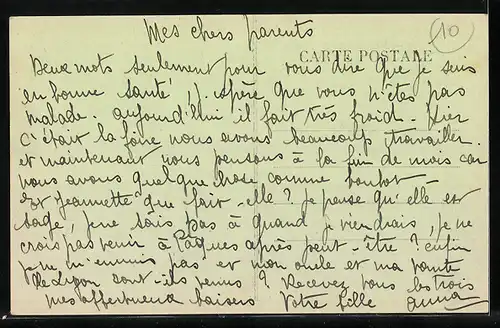 Mes chers parents
10
CARTE POSTALE
Deux mots seulement pour vous dire que je suis
en bonne santé, j'espère que vous n'êtes pas
malade. aujourd'hui il fait très froid. Hier
c'était la foire nous avons beaucoup travailler.
et maintenant nous pensons à la fin de mois car
nous avons quelque chose comme boulot.
Et Jeannette que fait-elle? je pense qu'elle est
sage, je ne sais pas à quand je viendrais, je ne
crois pas venir à Pâques après peut-être? enfin
je ne m'ennuis pas et mon oncle et ma tante
sont-ils venus? Recevez vous les trois
mes affectueux baisers Votre fille anna